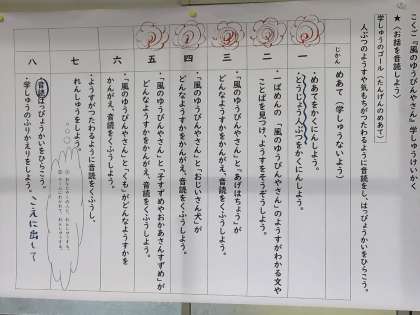 こくご『風のゆうびんやさん』学しゅうけいかく
★〈お話を音読しよう〉
学しゅうのゴール（たんげんのめあて）
人ぶつのようすや気もちがつたわるように音読をし、はっぴょうかいをひらこう。
じかん
めあて（学しゅうないよう）
一
・めあてをかくにんしよう。
・とうじょう人ぶつをかくにんしよう。
二
・一ばめんの「風のゆうびんやさん」のようすがわかる文や
ことばを見つけ、ようすをそうぞうしよう。
三
・「風のゆうびんやさん」と「あげはちょう」が
どんなようすかをかんがえ、音読をくふうしよう。
四
・「風のゆうびんやさん」と「おじいさん犬」が
どんなようすかをかんがえ、音読をくふうしよう。
五
・「風のゆうびんやさん」と「子すずめやおかあさんすずめ」が
どんなようすかをかんがえ、音読をくふうしよう。
六
・「風のゆうびんやさん」と「くも」がどんなようすかを
かんがえ、音読をくふうしよう。
七
・ようすがつたわるように音読をくふうし、
れんしゅうをしよう。
八
・音読はっぴょうかいをひらこう。
・学しゅうのふりかえりをしよう。
こえに出して